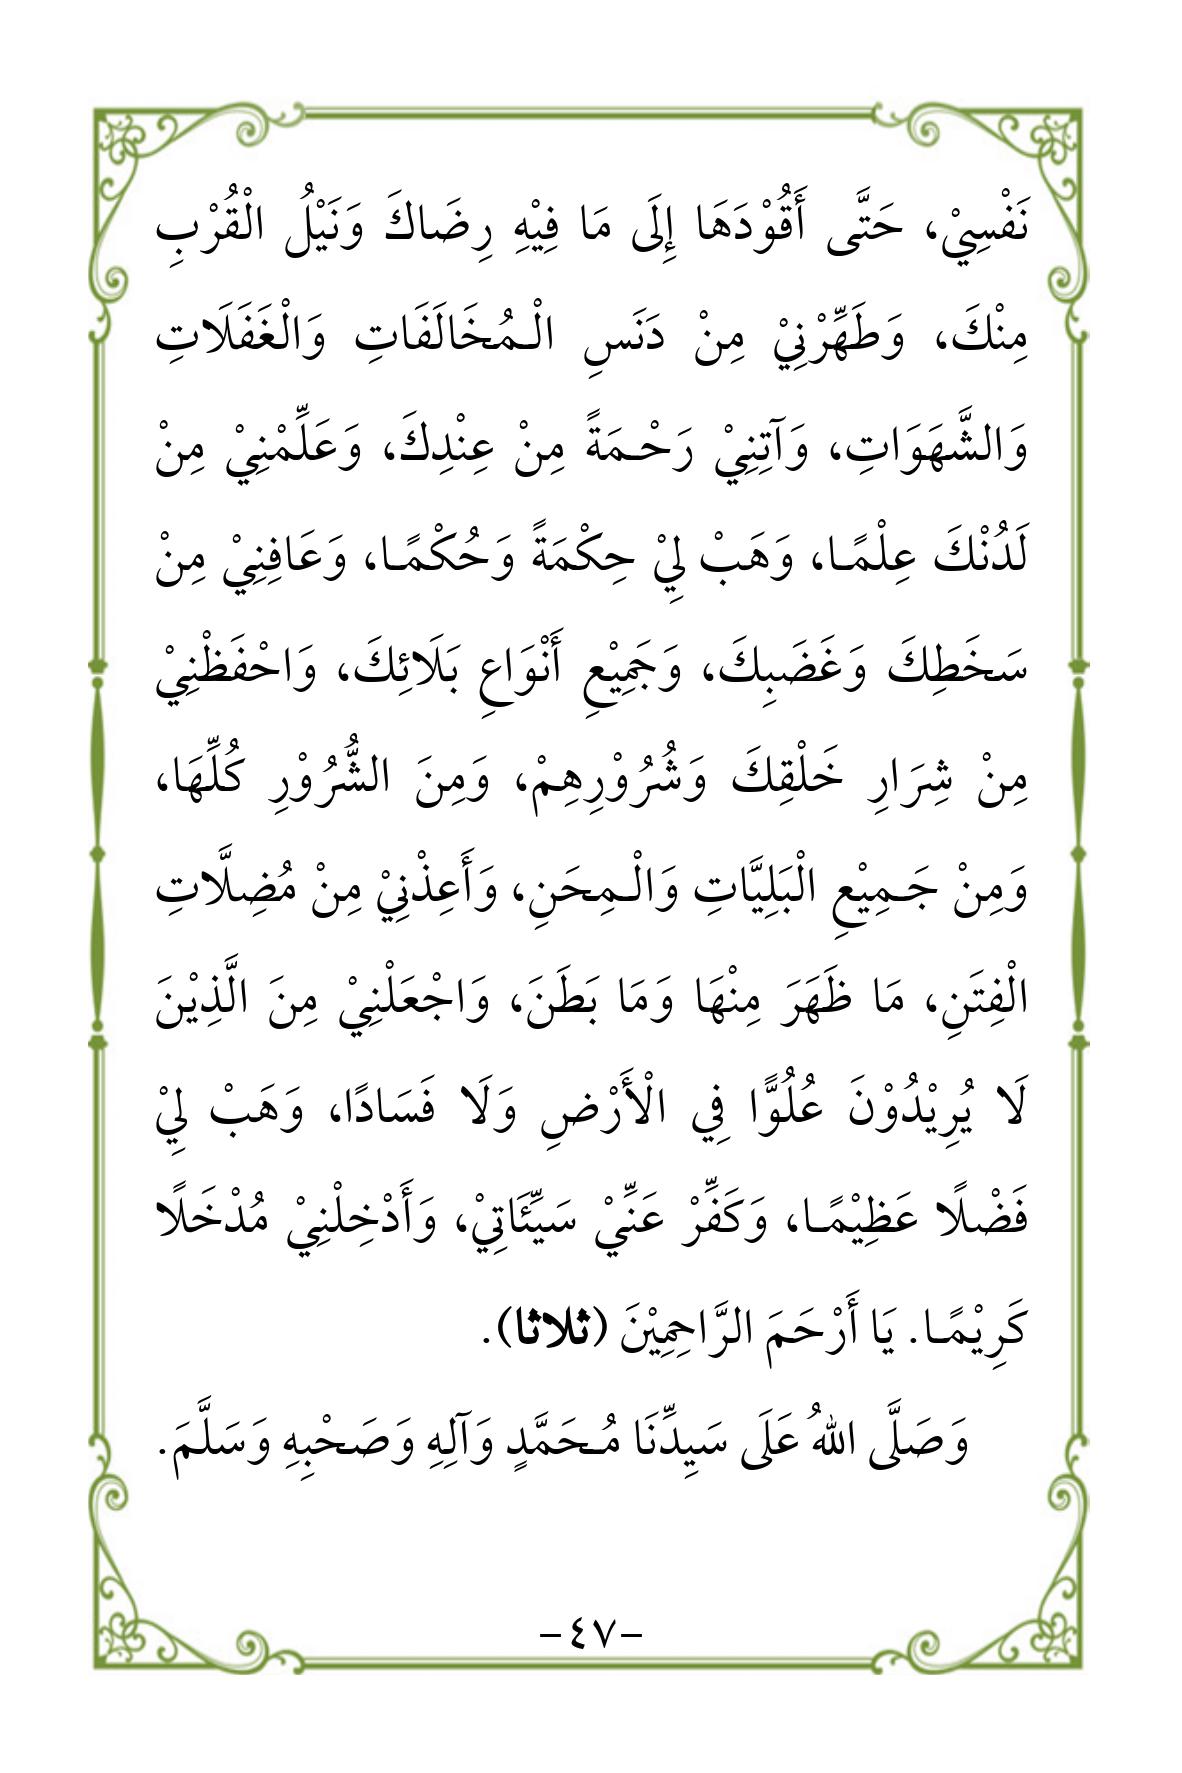 نَفْسِيْ، حَتَّى أَقُوْدَهَا إِلَى مَا فِيْهِ رِضَاكَ وَنَيْلُ الْقُرْبِ
مِنْكَ، وَطَهِّرْنِيْ مِنْ دَنَسِ الْـمُخَالَفَاتِ وَالْغَفَلَاتِ
وَالشَّهَوَاتِ، وَآتِنِيْ رَحْـمَةً مِنْ عِنْدِكَ، وَعَلِّمْنِيْ مِنْ
لَدُنْكَ عِلْمًـا، وَهَبْ لِيْ حِكْمَةً وَحُكْمًـا، وَعَافِنِيْ مِنْ
سَخَطِكَ وَغَضَبِكَ، وَجَمِيْعِ أَنْوَاعِ بَلَائِكَ، وَاحْفَظْنِيْ
مِنْ شِرَارِ خَلْقِكَ وَشُرُوْرِهِمْ، وَمِنَ الشُّرُوْرِ كُلِّهَا،
وَمِنْ جَـمِيْعِ الْبَلِيَّاتِ وَالْـمِحَنِ، وَأَعِذْنِيْ مِنْ مُضِلَّاتِ
الْفِتَنِ، مَا ظَهَرَ مِنْهَا وَمَا بَطَنَ، وَاجْعَلْنِيْ مِنَ الَّذِيْنَ
لَا يُرِيْدُوْنَ عُلُوًّا فِي الْأَرْضِ وَلَا فَسَادًا، وَهَبْ لِيْ
فَضْلًا عَظِيْمًـا، وَكَفِّرْ عَنِّيْ سَيِّئَاتِيْ، وَأَدْخِلْنِيْ مُدْخَلًا
كَرِيْمًـا. يَا أَرْحَمَ الرَّاحِمِيْنَ (ثلاثا).
وَصَلَّى اللهُ عَلَى سَيِدِّنَا مُـحَمَّدٍ وَآلِهِ وَصَحْبِهِ وَسَلَّمَ.
-٤٧-